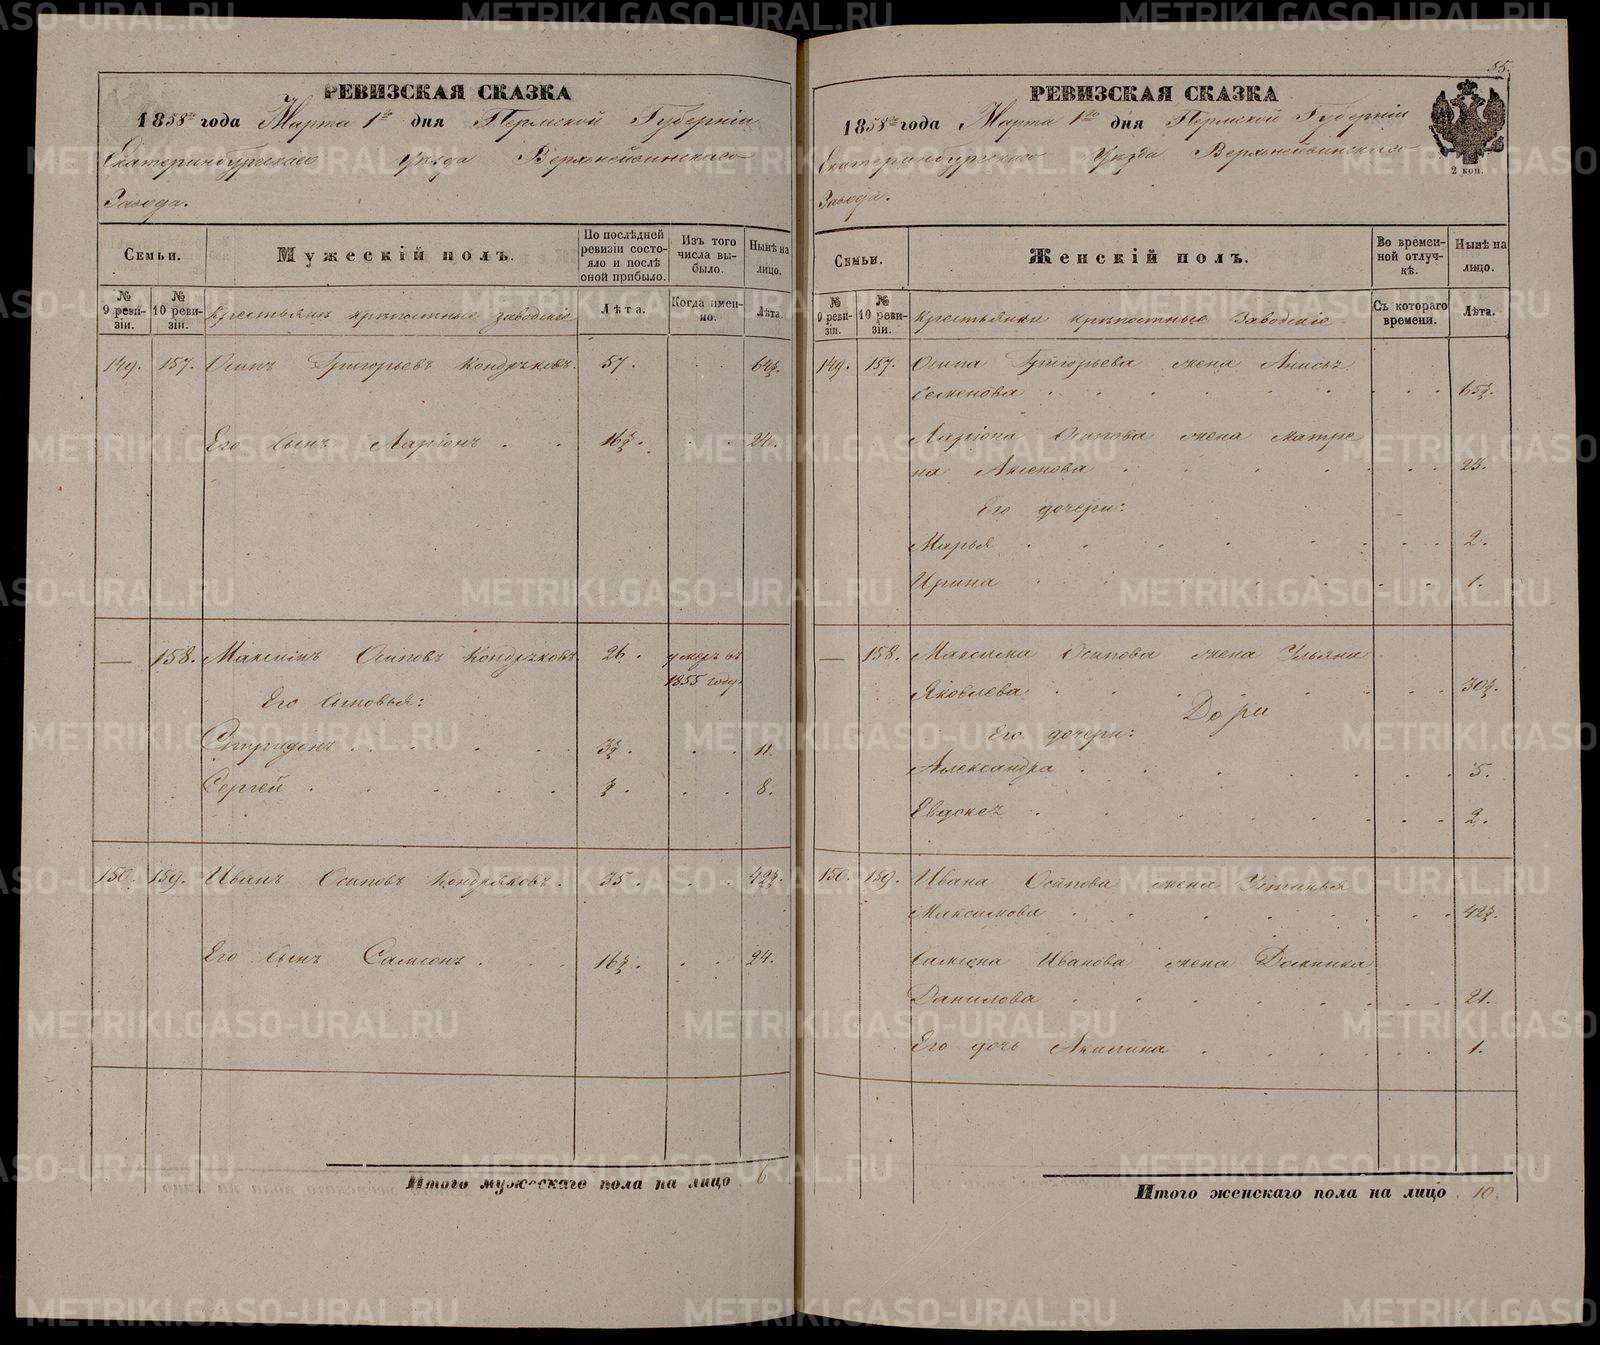 РЕВИЗСКАЯ СКАЗКА
1858го года Марта 1го дня Пермской Губерніи
Екатеринбургскаго Уѣзда Верхнейвинскаго
Завода.
Семьи.
Мужескій полъ.
По послѣдней ревизіи состояло и послѣ оной прибыло.
Изъ того числа выбыло.
Нынѣ на лицо.
№ 9 ревизіи.
№ 10 ревизіи.
Крестьянъ крѣпостные заводскіе
Лѣта.
Когда именно.
Лѣта.
149. 157. Осипъ Григорьевъ Кондряковъ. 57. . . 64½.
Его сынъ Ларіонъ . . 16½. . . 24.
— 158. Максимъ Осиповъ Кондряковъ 26. умеръ въ
1855 году.
Его сыновья:
Спиридонъ . . . . . 3½. . . 11.
Сергей . . . . . ½. . . 8.
150. 159. Иванъ Осиповъ Кондряковъ. 35. . . 42½.
Его сынъ Самсонъ . . . 16½. . . 24.
Итого мужескаго пола на лицо 6
85.
РЕВИЗСКАЯ СКАЗКА
1858го года Марта 1го дня Пермской Губерніи
Екатеринбургскаго Уѣзда Верхнейвинскаго
Завода.
2 коп.
Семьи.
Женскій полъ.
Во временной отлучкѣ.
Нынѣ на лицо.
№ 9 ревизіи.
№ 10 ревизіи.
Крестьянки крѣпостные Заводскіе
Съ котораго времени.
Лѣта.
149. 157. Осипа Григорьева жена Анисья
Семенова . . . . . . . 65½.
Ларіона Осипова жена Матре
на Аксенова . . . . . . 23.
Его дочери:
Марья . . . . . . . 2.
Ирина . . . . . . . 1.
— 158. Максима Осипова жена Ульяна
Яковлева . . . . . . . 30½.
Его дочери:
Александра . . . . . . 5.
Евдокея . . . . . . . 2.
150. 159. Ивана Осипова жена Устинья
Максимова . . . . . . . 42½.
Самсона Иванова жена Домника
Данилова . . . . . . . 21.
Его дочь Акилина . . . . . 1.
Итого женскаго пола на лицо . 10.
METRIKI.GASO-URAL.RU